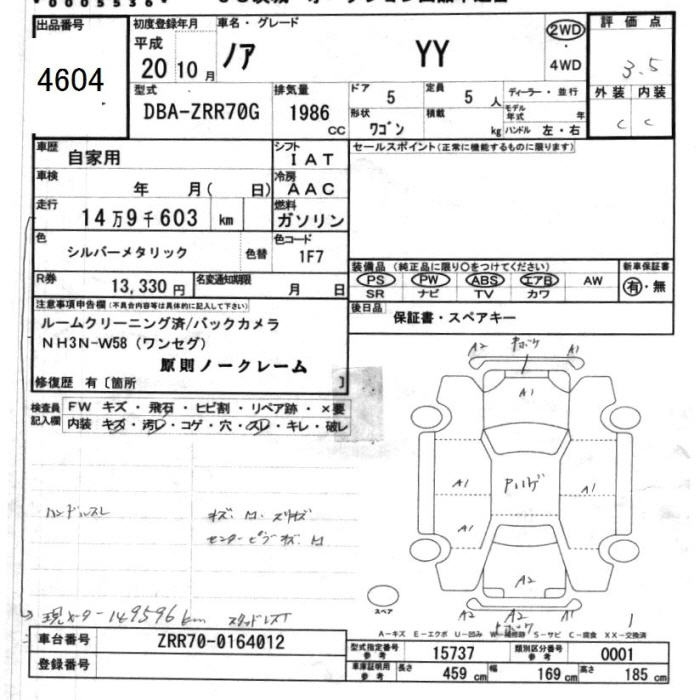 出品番号
4604
初度登録年月
平成
20 10 月
車名・グレード
ノア YY
2WD
4WD
評価点
3.5
外装 内装
C C
型式
DBA-ZRR70G
排気量
1986
CC
ドア
5
定員
5 人
形状
ワゴン
積載
kg
ディーラー・並行
モデル年式 年
ハンドル 左・右
車歴
自家用
シフト
IAT
車検
年 月( 日)
冷房
AAC
走行
14万9千603 km
燃料
ガソリン
色
シルバーメタリック
色替
色コード
1F7
R券
13,330 円
名変通知期限
月 日
セールスポイント(正常に機能するものに限ります)
装備品(純正品に限り○をつけてください)
PS PW ABS エアB AW
SR ナビ TV カワ
新車保証書
有・無
後日品
保証書・スペアキー
注意事項申告欄(不具合内容等は具体的に記入して下さい)
ルームクリーニング済/バックカメラ
NH3N-W58(ワンセグ)
原則ノークレーム
修復歴 有〔箇所 〕
検査員記入欄
FW キズ・飛石・ヒビ割・リペア跡・×要
内装 キズ・汚レ・コゲ・穴・スレ・キレ・破レ
ハンドルスレ
A2 A1
A1
A1 A1
A1
A2
A2 A2 A1
スペア
現メーター149596km
A-キズ E-エクボ U-凹み W-補修跡 S-サビ C-腐食 XX-交換済
車台番号
ZRR70-0164012
登録番号
型式指定番号
参考
15737
類別区分番号
参考
0001
車庫証明用
参考
長さ 459 cm
幅 169 cm
高さ 185 cm